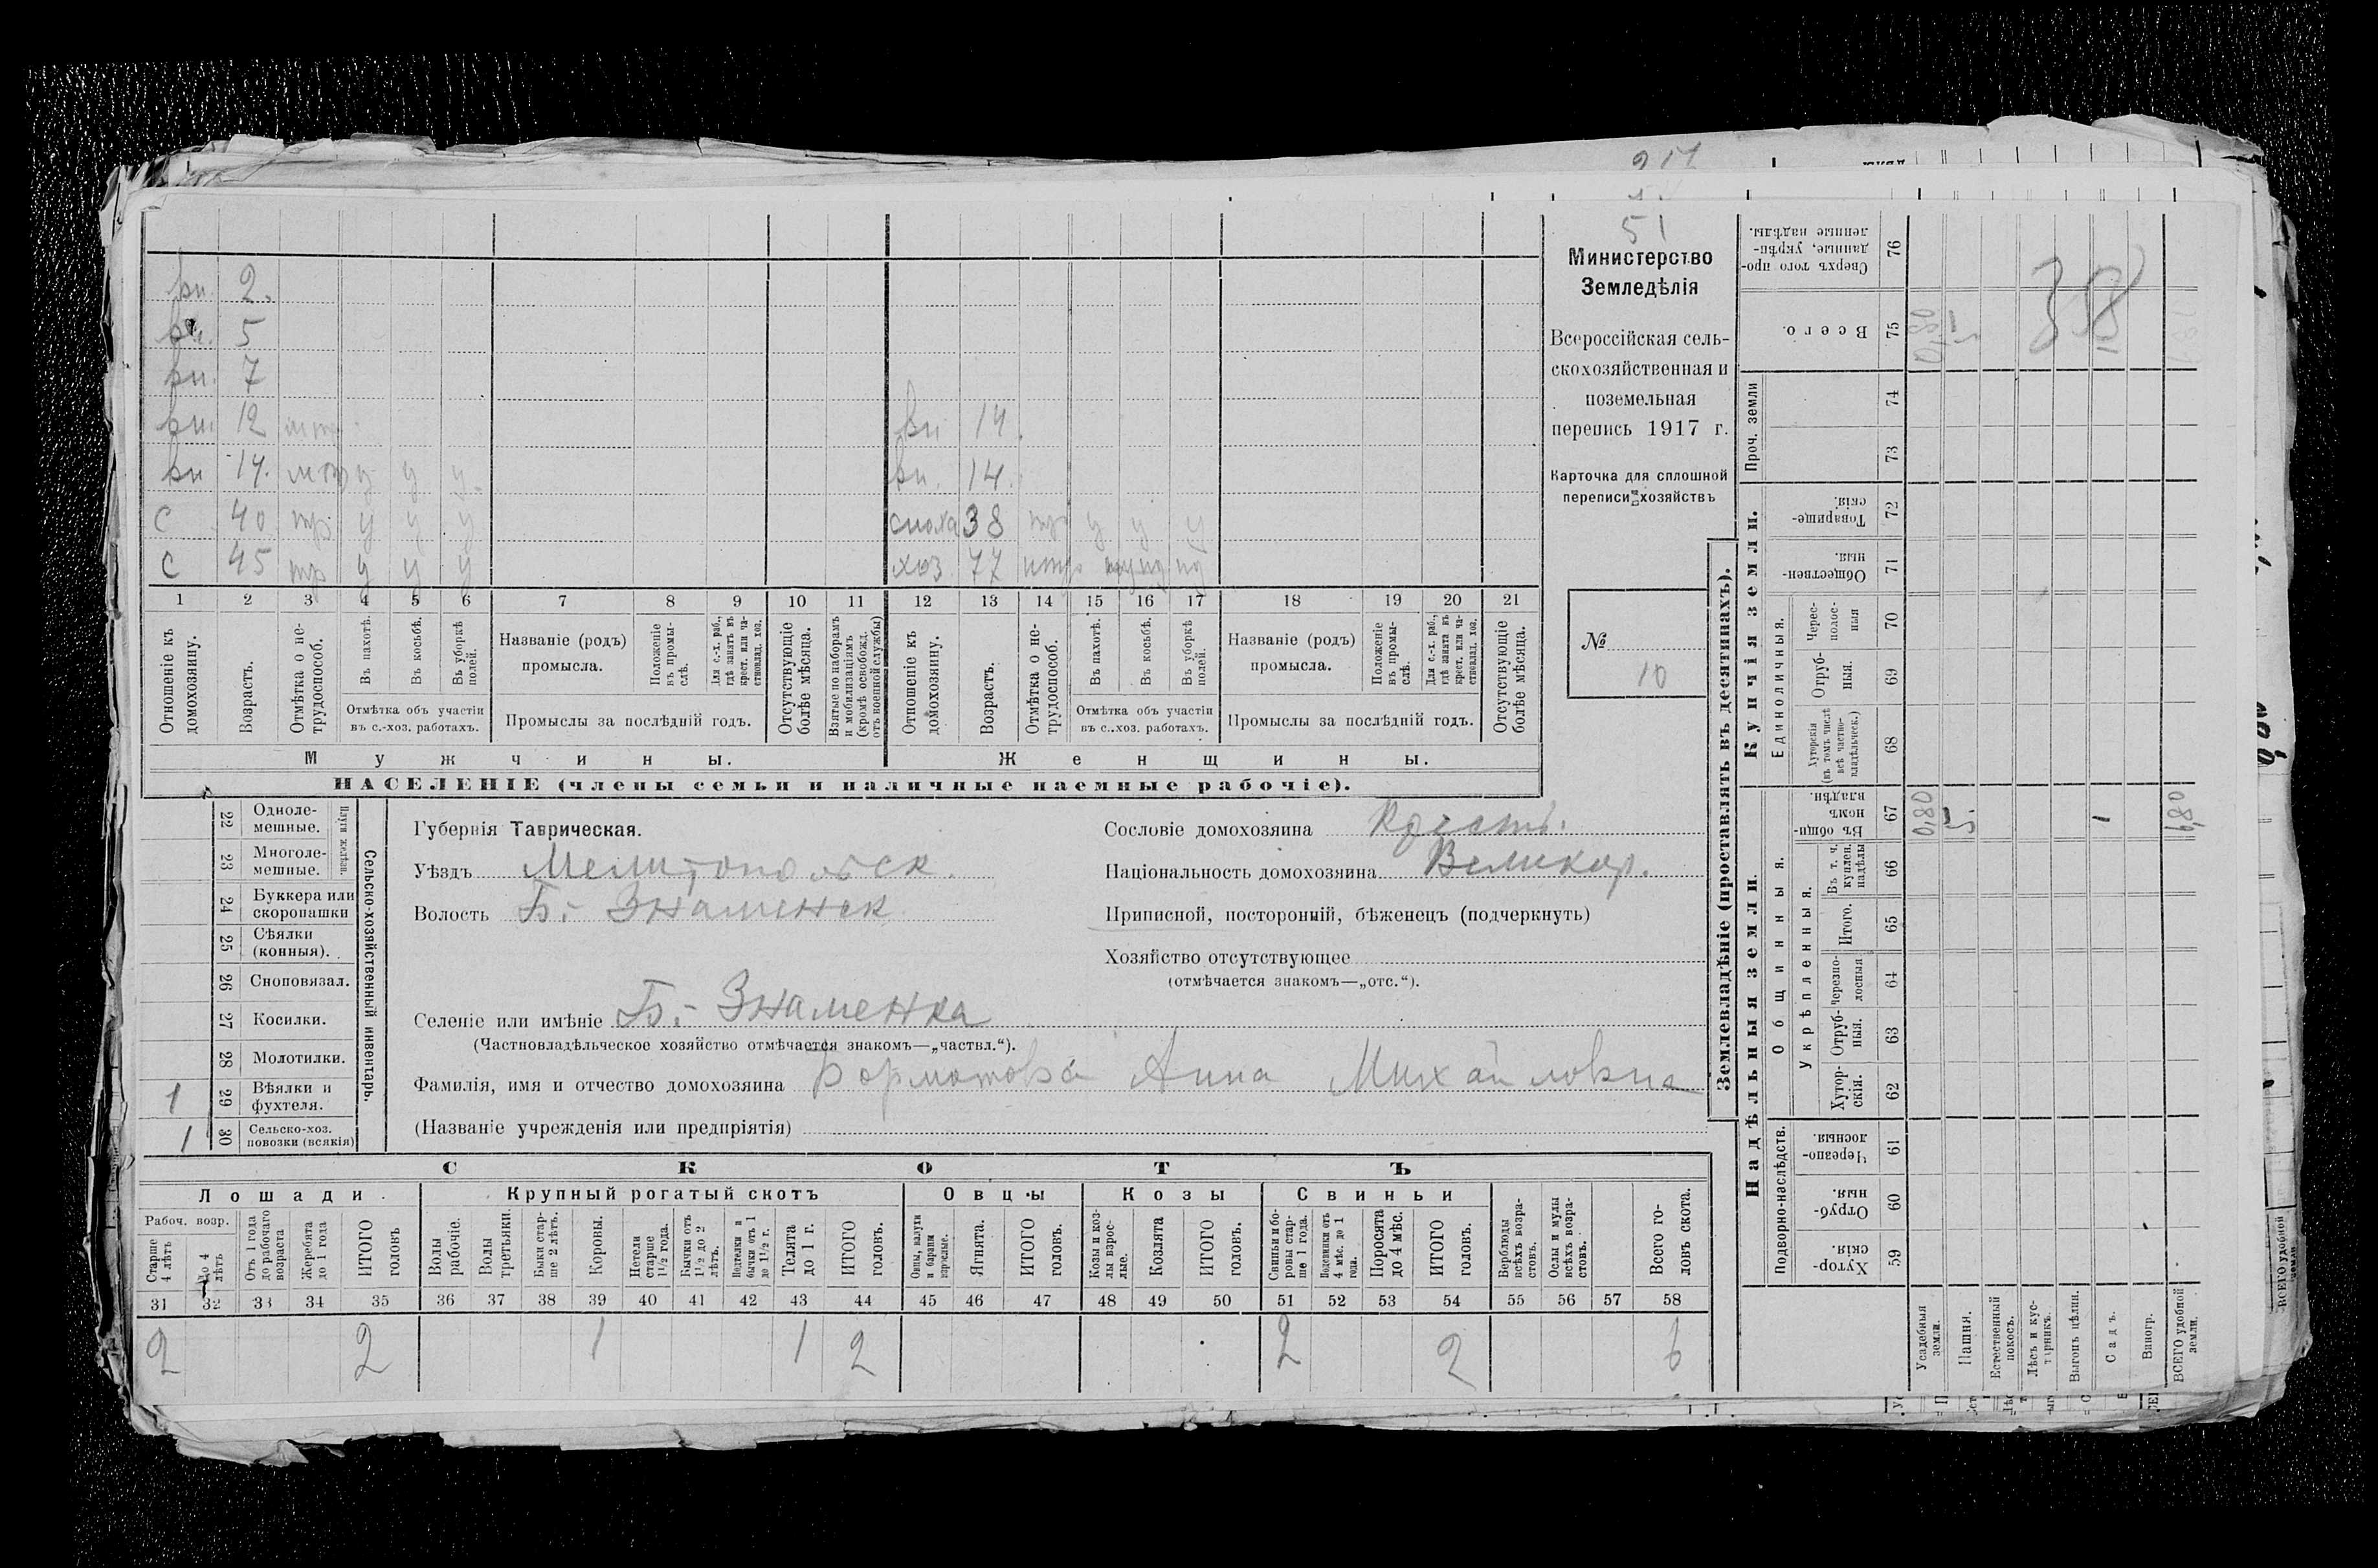 51
Министерство
Земледѣлія
Всероссійская сель-
скохозяйственная и
поземельная
перепись 1917 г.
Карточка для сплошной
переписи хозяйствъ
№
10
вн. 2.
вн. 5
вн. 7
вн. 12 нтр
вн 14. нтр у у у.
С 40 тр у у у
С 45 тр у у у
вн 14.
вн. 14.
сноха 38 тр у у у
хоз. 77 нтр
1 2 3 4 5 6 7 8 9 10 11 12 13 14 15 16 17 18 19 20 21
Отношеніе къ домохозяину.
Возрастъ.
Отмѣтка о не-трудоспособ.
Въ пахотѣ.
Въ косьбѣ.
Въ уборкѣ полей.
Отмѣтка объ участіи
въ с.-хоз. работахъ.
Названіе (родъ)
промысла.
Положеніе въ промы-слѣ.
Для с.-х. раб., гдѣ занятъ въ крест. или ча-стновлад. хоз.
Промыслы за послѣдній годъ.
Отсутствующіе болѣе мѣсяца.
Взятые по наборамъ и мобилизаціямъ (кромѣ освобожд. отъ военной службы)
Отношеніе къ домохозяину.
Возрастъ.
Отмѣтка о не-трудоспособ.
Въ пахотѣ.
Въ косьбѣ.
Въ уборкѣ полей.
Отмѣтка объ участіи
въ с.-хоз. работахъ.
Названіе (родъ)
промысла.
Положеніе въ промы-слѣ.
Для с.-х. раб., гдѣ занята въ крест. или ча-стновлад. хоз.
Промыслы за послѣдній годъ.
Отсутствующіе болѣе мѣсяца.
Мужчины.
Женщины.
НАСЕЛЕНІЕ (члены семьи и наличные наемные рабочіе).
22 Одноле-мешные.
23 Многоле-мешные.
Плуги желѣзн.
24 Буккера или скоропашки
25 Сѣялки (конныя).
26 Сноповязал.
27 Косилки.
28 Молотилки.
1 29 Вѣялки и фухтеля.
1 30 Сельско-хоз. повозки (всякія)
Сельско-хозяйственный инвентарь.
Губернія Таврическая.
Уѣздъ Мелитопольск.
Волость Б.-Знаменск
Селеніе или имѣніе Б.-Знаменка
(Частновладѣльческое хозяйство отмѣчается знакомъ—„частвл.“).
Фамилія, имя и отчество домохозяина Анна Михайловна
(Названіе учрежденія или предпріятія)
Сословіе домохозяина Крестъ.
Національность домохозяина Великор.
Приписной, посторонній, бѣженецъ (подчеркнуть)
Хозяйство отсутствующее
(отмѣчается знакомъ—„отс.“).
СКОТЪ
Лошади.
Крупный рогатый скотъ
Овцы
Козы
Свиньи
Рабоч. возр.
Старше 4 лѣтъ
До 4 лѣтъ
Отъ 1 года до рабочаго возраста
Жеребята до 1 года
ИТОГО головъ
Волы рабочіе.
Волы третьяки.
Быки стар-ше 2 лѣтъ.
Коровы.
Нетели старше 1½ года.
Бычки отъ 1½ до 2 лѣтъ.
Подтелки и бычки отъ 1 до 1½ г.
Телята до 1 г.
ИТОГО головъ.
Овцы, валухи и бараны взрослые.
Ягнята.
ИТОГО головъ.
Козы и коз-лы взрос-лые.
Козлята
ИТОГО головъ.
Свиньи и бо-ровы стар-ше 1 года.
Подсвинки отъ 4 мѣс. до 1 года.
Поросята до 4 мѣс.
ИТОГО головъ.
Верблюды всѣхъ возра-стовъ.
Ослы и мулы всѣхъ возра-стовъ.
Всего го-ловъ скота.
31 32 33 34 35 36 37 38 39 40 41 42 43 44 45 46 47 48 49 50 51 52 53 54 55 56 57 58
2 2 1 1 2 2 2 6
Землевладѣніе (проставлять въ десятинахъ).
Надѣльныя земли
Купчія земли.
Проч. земли
Подворно-наслѣдств.
Общинныя.
Укрѣпленныя.
Единоличныя.
Хутор-скія. 59
Отруб-ныя. 60
Черезпо-лосныя. 61
Хутор-скія. 62
Отруб-ныя. 63
Черезпо-лосныя 64
Итого. 65
Въ т. ч. куплен. надѣлы 66
Въ общи-номъ владѣн. 67
Хуторскія (въ томъ числѣ всѣ частно-владѣльческ.) 68
Отруб-ныя. 69
Черес-полос-ныя 70
Обществен-ныя. 71
Товарище-скія. 72
73
74
Всего. 75
Сверхъ того про-данные, укрѣп-ленные надѣлы. 76
Усадебныя земли.
Пашня.
Естественный покосъ.
Лѣсъ и кус-тарникъ.
Выгонъ цѣлин.
Садъ.
Виногр.
ВСЕГО удобной земли.
0,80
0,80
38
ВСЕГО удобной земли